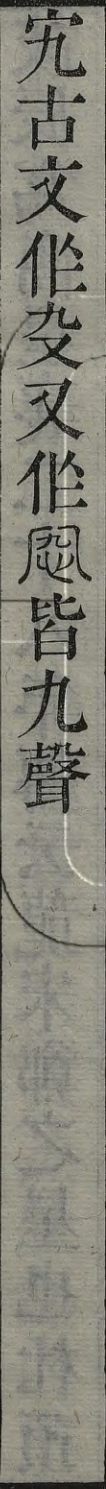 宄古文作𡧍又作𢙺皆九聲